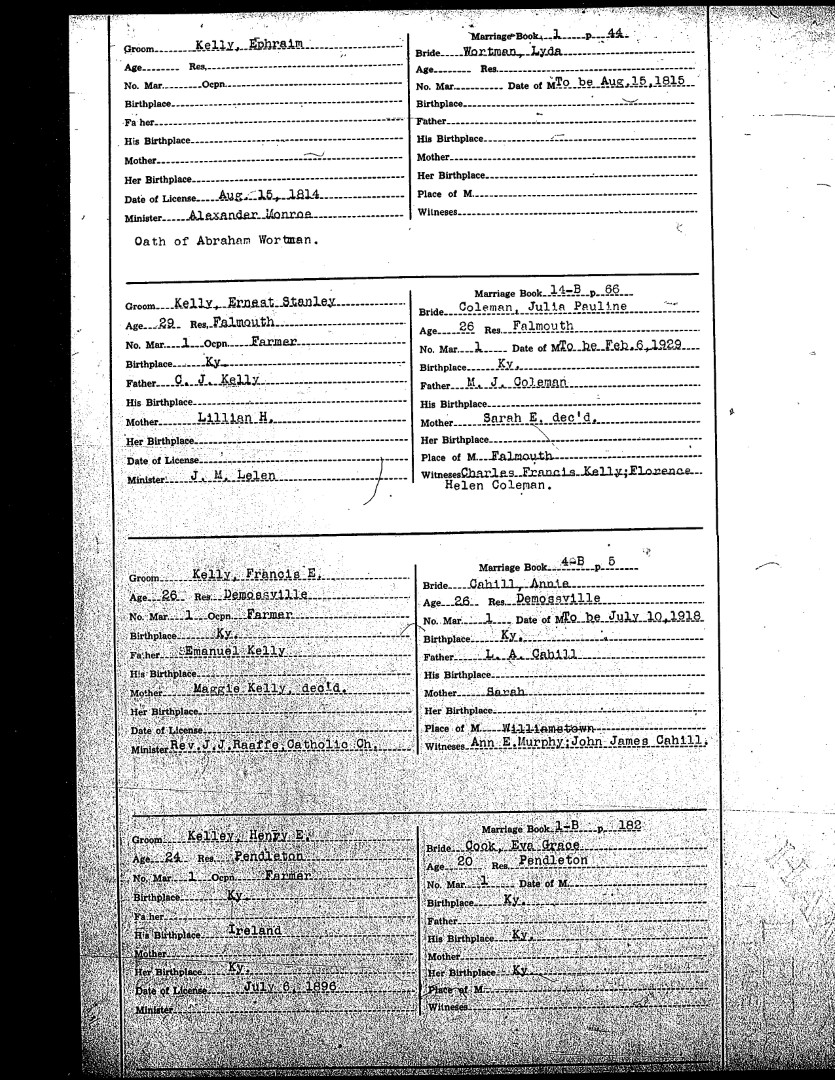 Marriage Book 1 p. 44
Groom Kelly, Ephraim
Bride Wortman, Lyda
Age Res.
Age Res.
No. Mar. Ocpn.
No. Mar. Date of M To be Aug.15,1815
Birthplace
Birthplace
Fa her
Father
His Birthplace
His Birthplace
Mother
Mother
Her Birthplace
Her Birthplace
Date of License Aug. 15, 1814
Place of M.
Minister Alexander Monroe
Witnesses
Oath of Abraham Wortman.
Marriage Book 14-B p. 66
Groom Kelly, Ernest Stanley
Bride Coleman, Julia Pauline
Age 29 Res. Falmouth
Age 26 Res. Falmouth
No. Mar. 1 Ocpn. Farmer
No. Mar. 1 Date of M To be Feb.6,1929
Birthplace Ky.
Birthplace Ky.
Father C. J. Kelly
Father M. J. Coleman
His Birthplace
His Birthplace
Mother Lillian H.
Mother Sarah E. dec'd.
Her Birthplace
Her Birthplace
Date of License
Place of M. Falmouth
Minister J. M. Lelen
Witnesses Charles Francis Kelly;Florence
Helen Coleman.
Marriage Book 4-B p. 5
Groom Kelly, Francis E.
Bride Cahill, Annie
Age 26 Res. Demossville
Age 26 Res. Demossville
No. Mar. 1 Ocpn. Farmer
No. Mar. 1 Date of M To be July 10,1918
Birthplace Ky.
Birthplace Ky.
Father Emanuel Kelly
Father L. A. Cahill
His Birthplace
His Birthplace
Mother Maggie Kelly, dec'd.
Mother Sarah
Her Birthplace
Her Birthplace
Date of License
Place of M. Williamstown
Minister Rev.J.J.Raaffe,Catholic Ch.
Witnesses Ann E.Murphy;John James Cahill.
Marriage Book 1-B p. 182
Groom Kelley, Henry E.
Bride Cook, Eva Grace
Age 24 Res. Pendleton
Age 20 Res. Pendleton
No. Mar. 1 Ocpn. Farmer
No. Mar. 1 Date of M.
Birthplace Ky.
Birthplace Ky.
Father
Father
His Birthplace Ireland
His Birthplace Ky.
Mother
Mother
Her Birthplace Ky.
Her Birthplace Ky
Date of License July 6, 1896
Place of M.
Minister
Witnesses